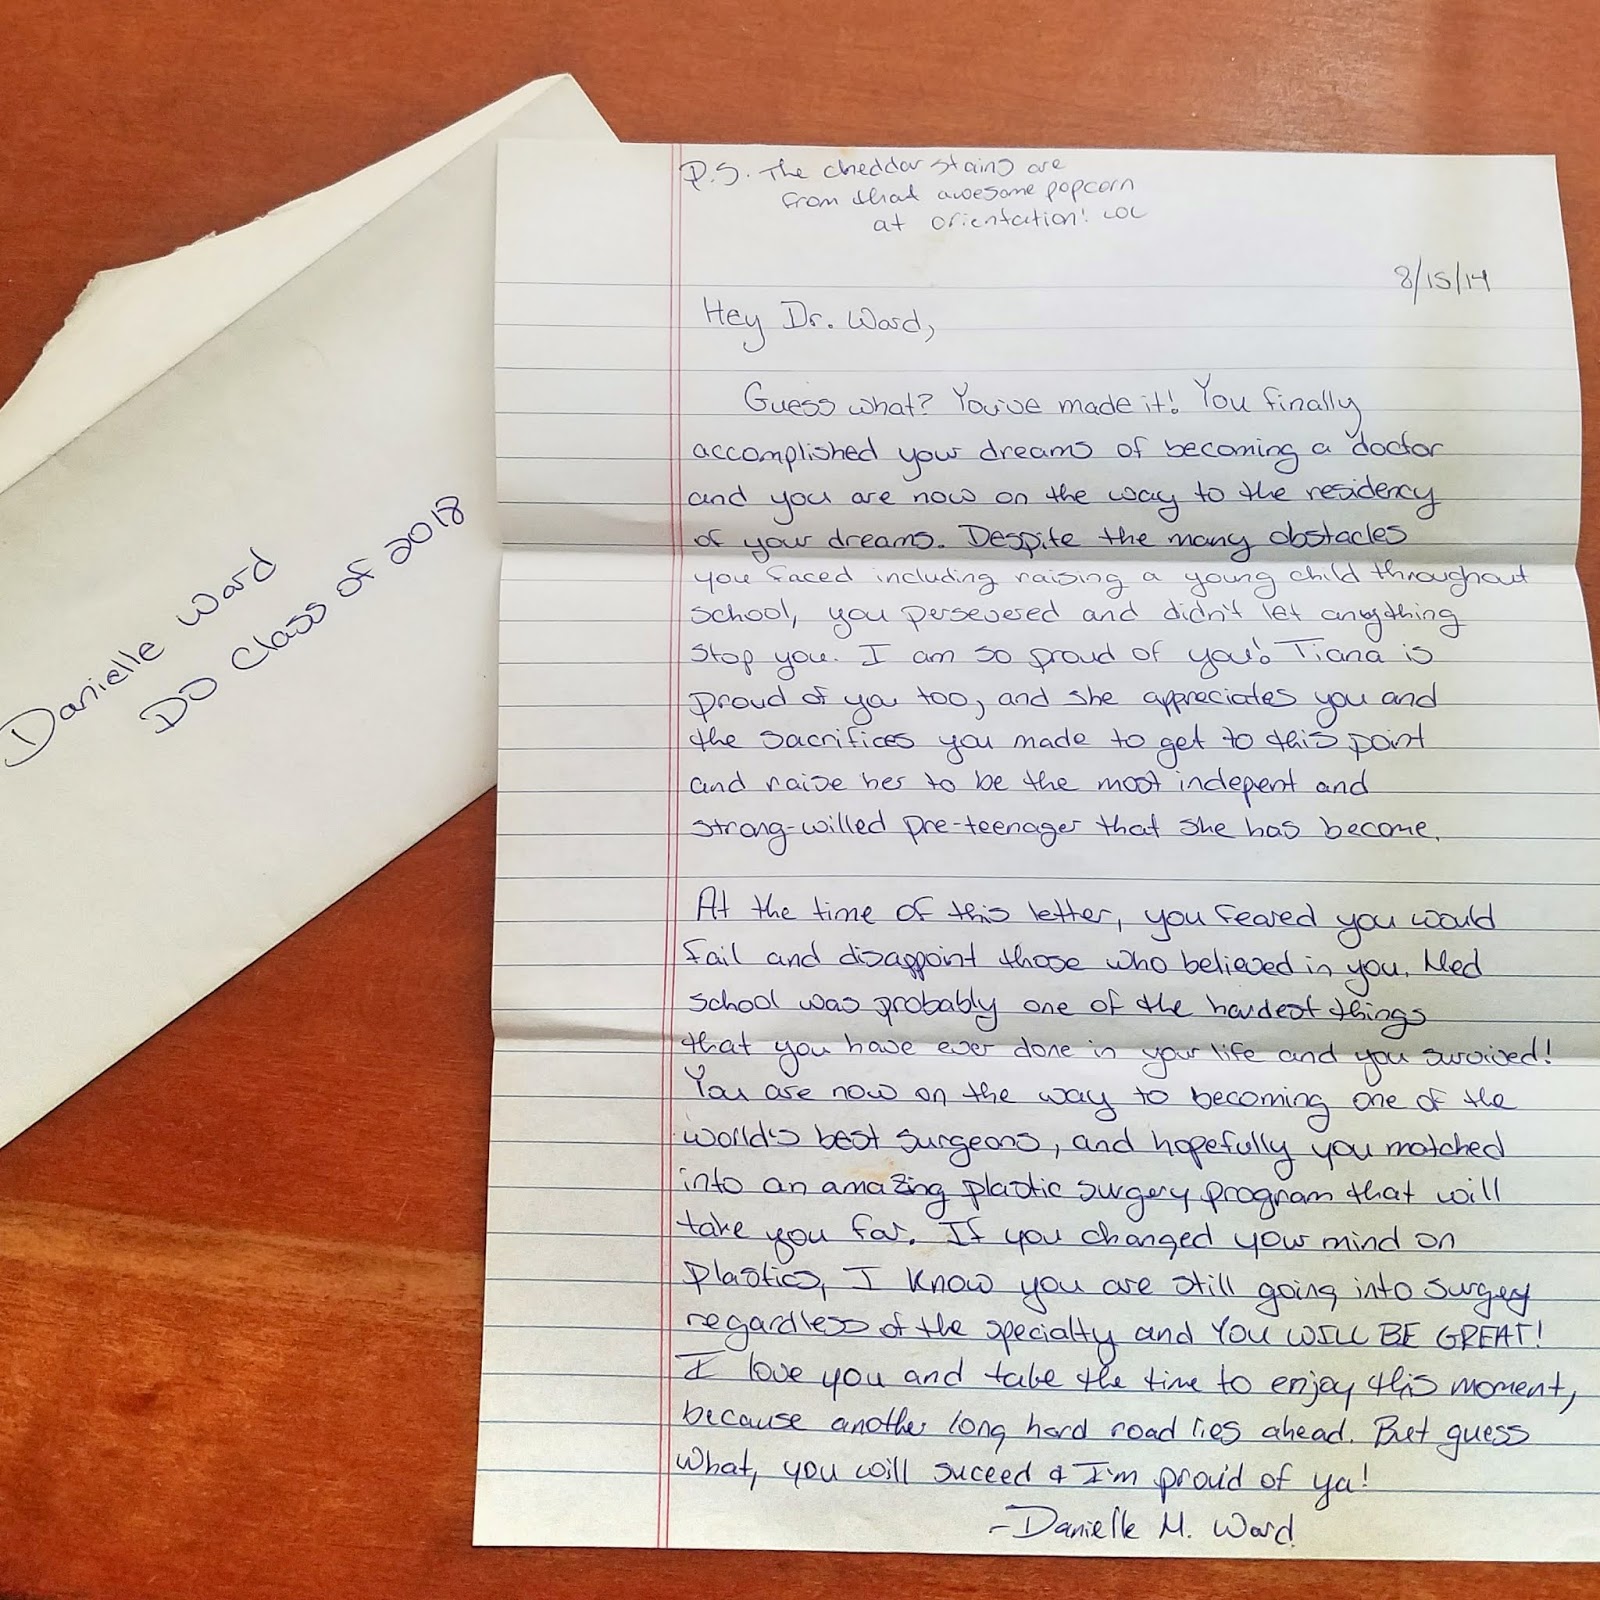 Danielle Ward
DO Class of 2018
P.S. The cheddar stains are
from that awesome popcorn
at orientation! LOL
8/15/14
Hey Dr. Ward,
Guess what? You've made it! You finally
accomplished your dreams of becoming a doctor
and you are now on the way to the residency
of your dreams. Despite the many obstacles
you faced including raising a young child throughout
school, you persevered and didn't let anything
stop you. I am so proud of you! Tiana is
proud of you too, and she appreciates you and
the sacrifices you made to get to this point
and raise her to be the most indepent and
strong-willed pre-teenager that she has become.
At the time of this letter, you feared you would
fail and disappoint those who believed in you. Med
school was probably one of the hardest things
that you have ever done in your life and you survived!
You are now on the way to becoming one of the
world's best surgeons, and hopefully you matched
into an amazing plastic surgery program that will
take you far. If you changed your mind on
plastics, I know you are still going into surgery
regardless of the specialty and YOU WILL BE GREAT!
I love you and take the time to enjoy this moment,
because another long hard road lies ahead. But guess
what, you will suceed & I'm proud of ya!
-Danielle M. Ward